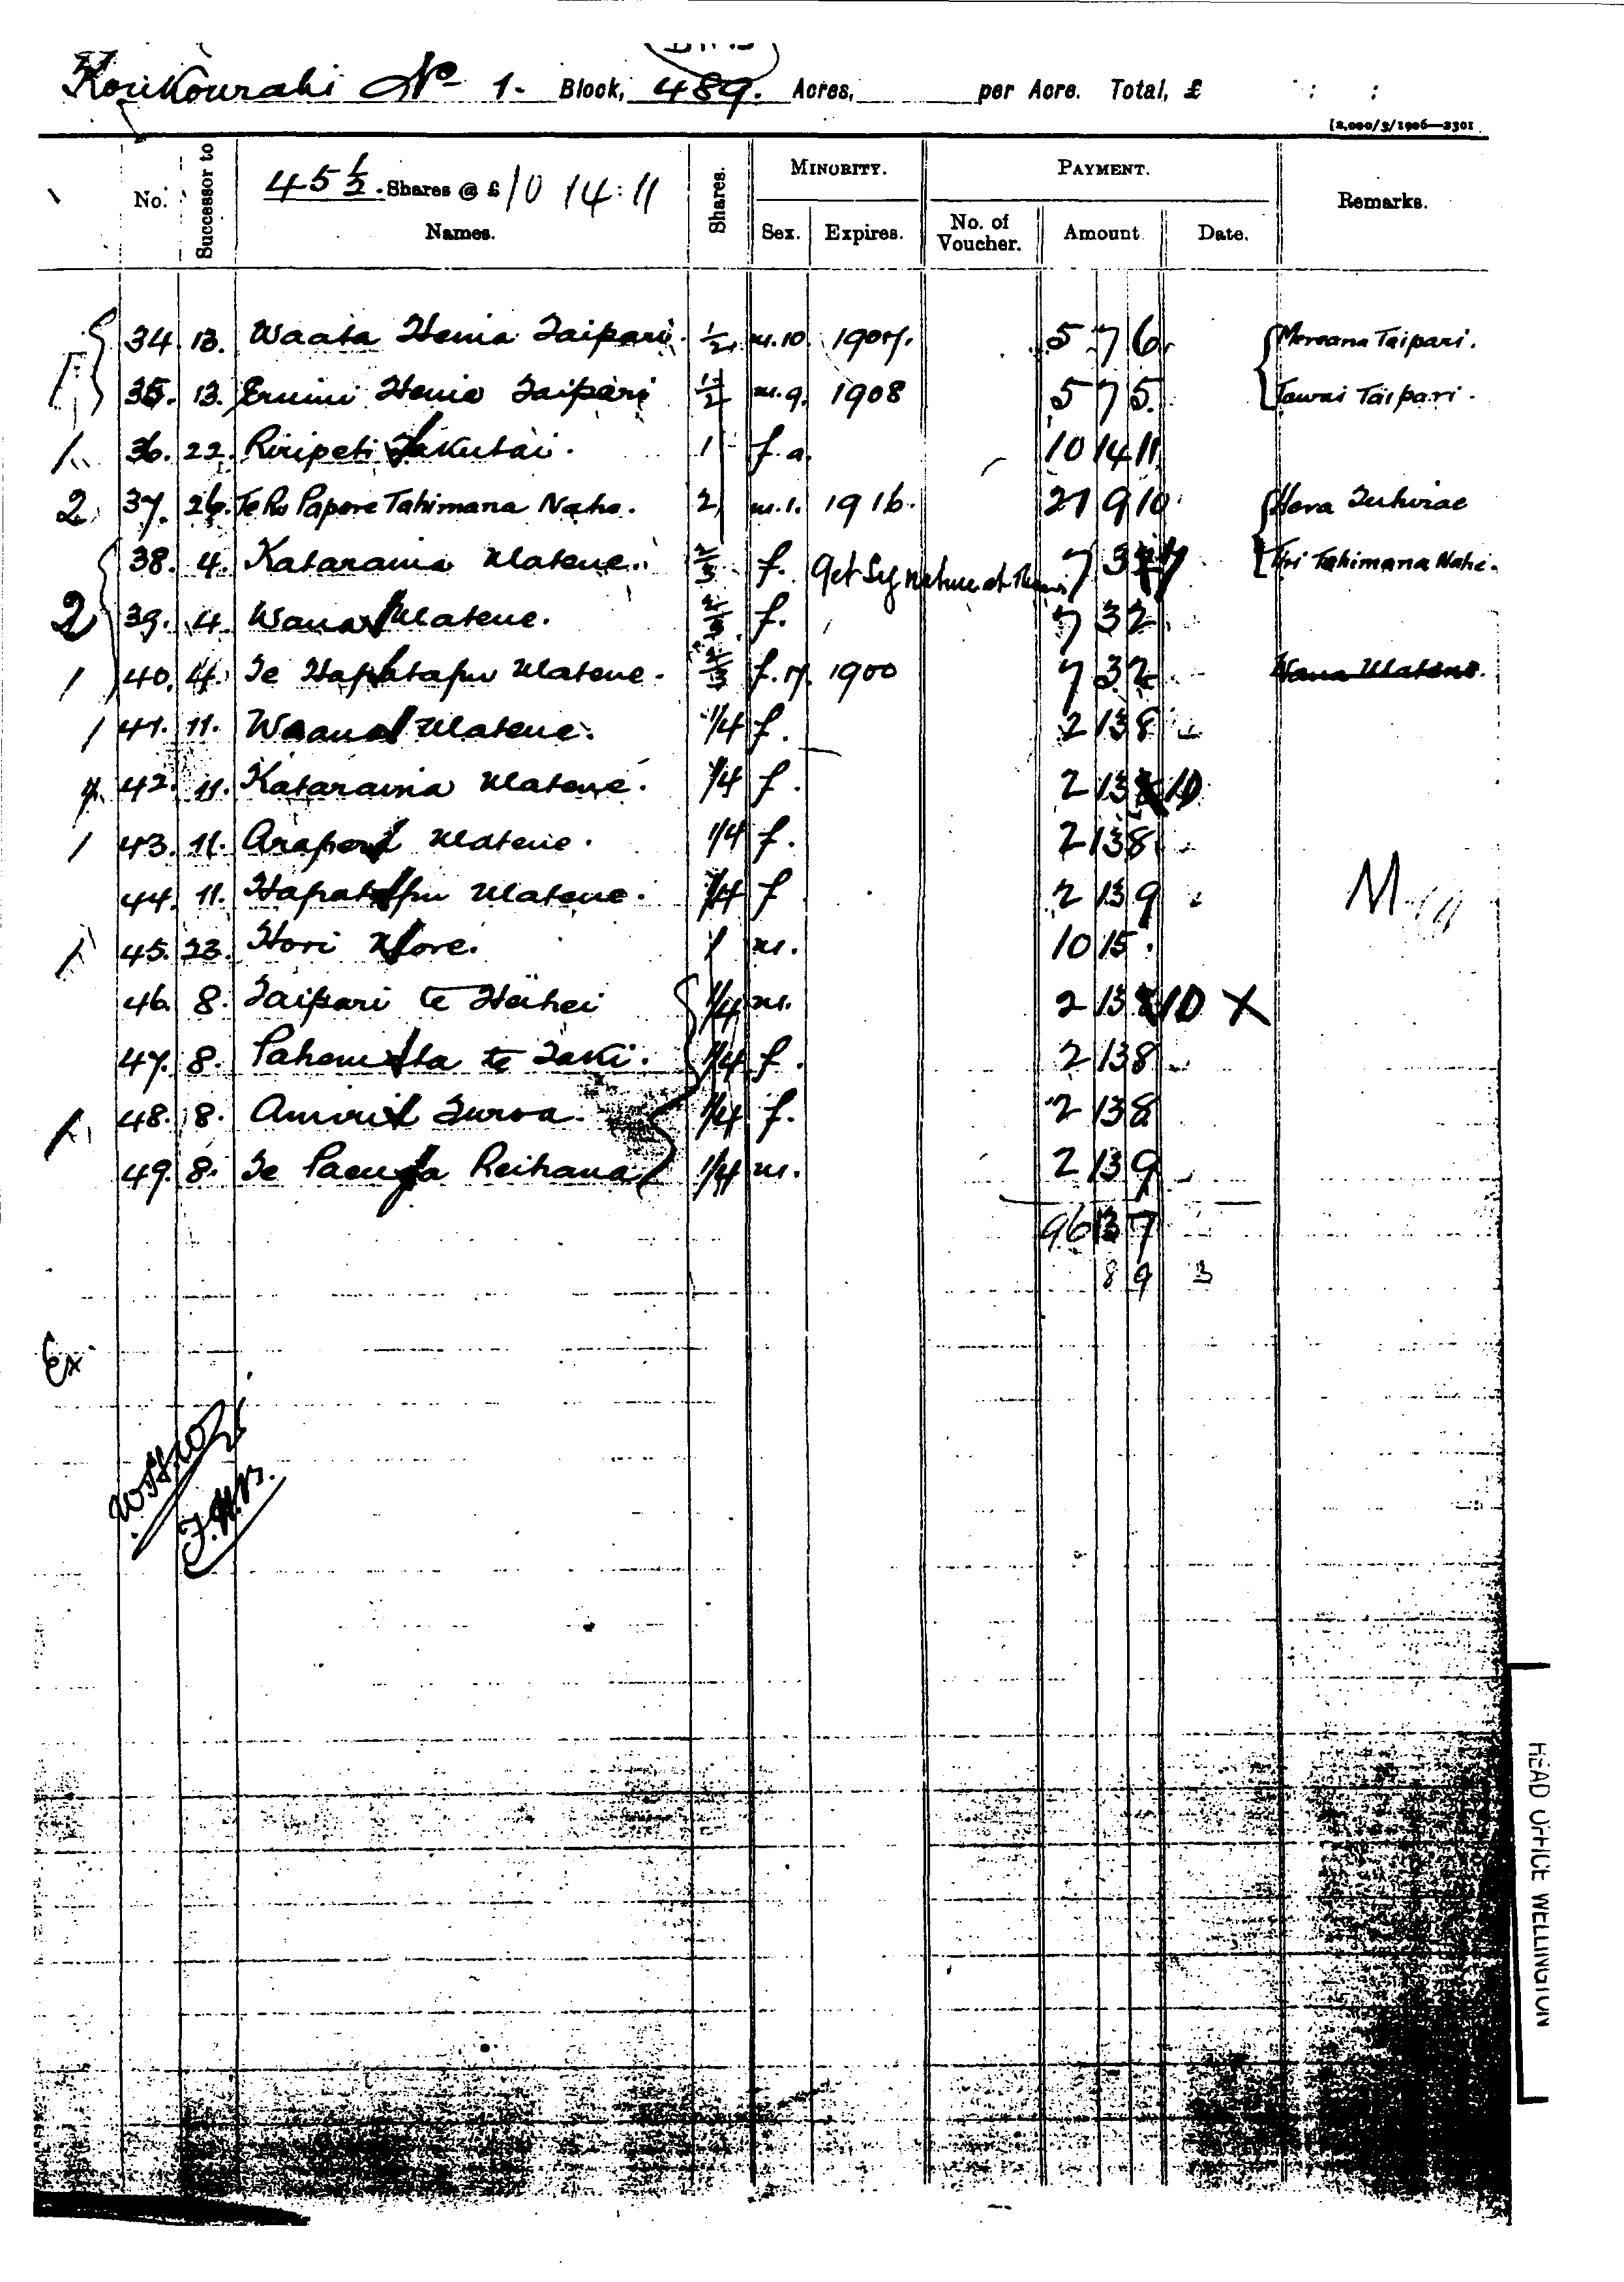 Kourikourahi No 1. Block, 489. Acres, per Acre. Total, £ : :
[2,000/3/1906—2301
No. Successor to 45 1/2 . Shares @ £ 10 14:11 Names. Shares. MINORITY. Sex. Expires. PAYMENT. No. of Voucher. Amount Date. Remarks.
34. 13. Waata Henia Taipari. 1/2 m.10 1907. 5 7 6 Mereana Taipari.
35. 13. Erueini Henia Taipari 1/2 m.9. 1908 5 7 5 Tawai Taipari.
1 36. 22. Riripeti Takutai. 1 f.a. 10 14 11
2 37. 26. Te Ro Papere Tahimana Nahe. 2 m.1. 1916. 21 9 10 Hera Tuhirae
38. 4. Kataraina Watene. 2/3 f. Get Signature at 7 3 Eri Tahimana Nahe.
2 39. 4. Wana Watene. 2/3 f. 7 3 2
1 40. 4. Te Hapatapu Watene. 2/3 f.17. 1900 7 3 2 Wana Watene.
1 41. 11. Waana Watene. 1/4 f. 2 13 8
42. 11. Kataraina Watene. 1/4 f. 2 13 8 10
1 43. 11. Arapera Watene. 1/4 f. 2 13 8
44. 11. Hapatapu Watene. 1/4 f 2 13 9 M
1 45. 23. Hori More. 1 m. 10 15 .
46. 8. Taipari te Heihei 1/4 m. 2 13 8 10 X
47. 8. te Taki. 1/4 f. 2 13 8
1 48. 8. Amiria Turoa. 1/4 f. 2 13 8
49. 8. Te Paeunga Reihana 1/4 m. 2 13 9
96 13 7
8 9 3
Ex
HEAD OFFICE WELLINGTON